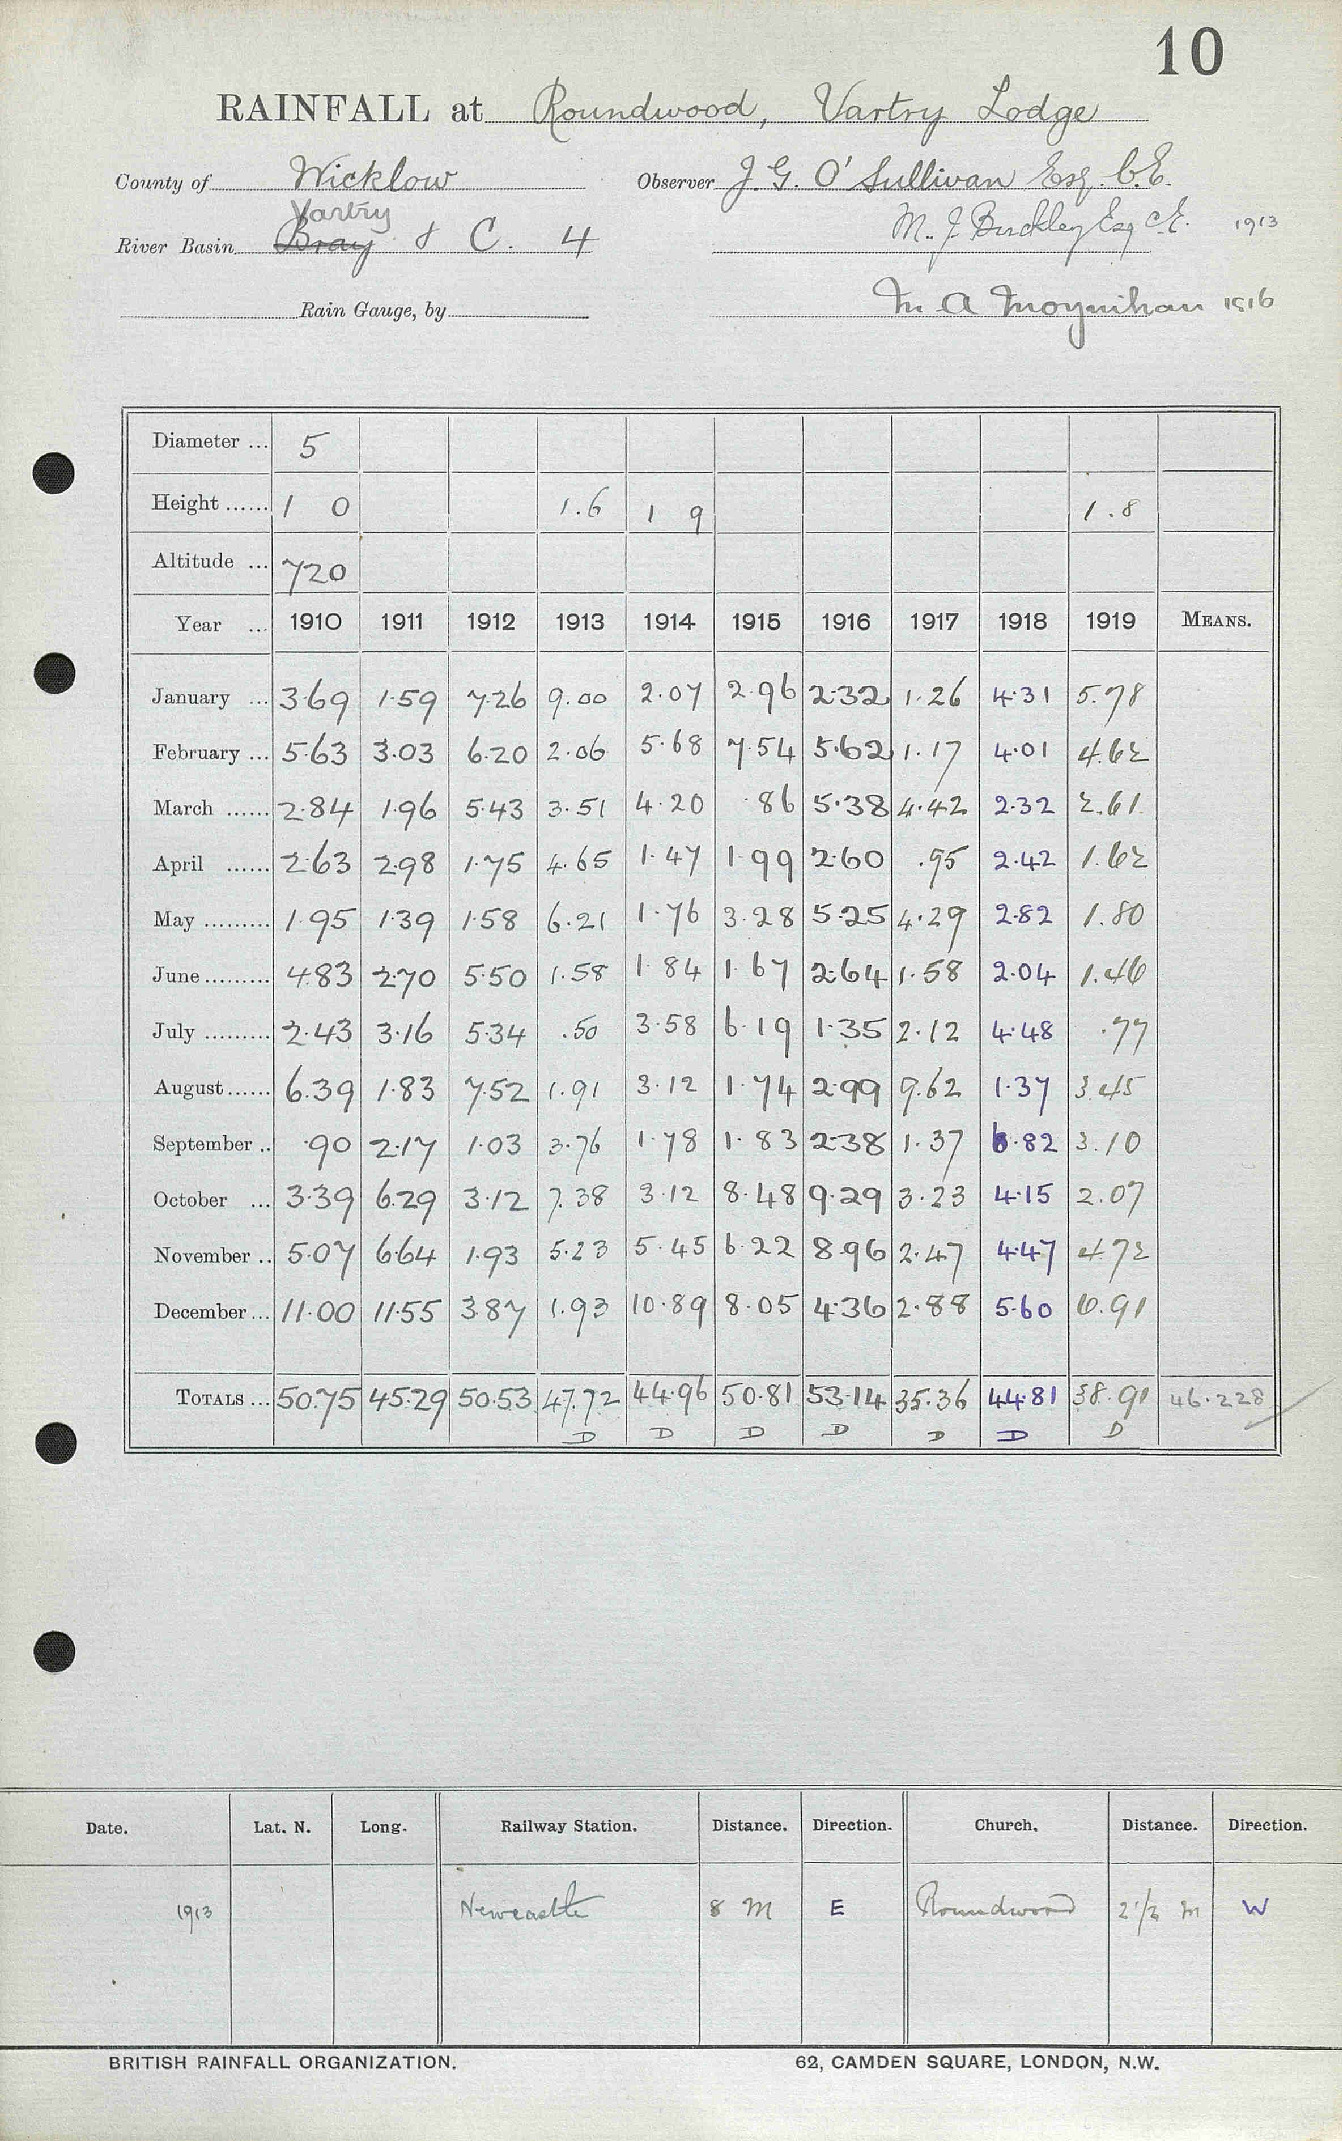 10
RAINFALL at Roundwood, Vartry Lodge
County of Wicklow Observer J. G. O'Sullivan Esq. C.E.
Vartry
River Basin Bray & C. 4 M. J. Buckley Esq C.E. 1913
Rain Gauge, by M A Moynihan 1916
Diameter ... 5
Height ...... 1 0 1.6 1 9 1.8
Altitude ... 720
Year ... 1910 1911 1912 1913 1914 1915 1916 1917 1918 1919 MEANS.
January ... 3.69 1.59 7.26 9.00 2.07 2.96 2.32 1.26 4.31 5.78
February ... 5.63 3.03 6.20 2.06 5.68 7.54 5.62 1.17 4.01 4.62
March ...... 2.84 1.96 5.43 3.51 4.20 .86 5.38 4.42 2.32 2.61
April ...... 2.63 2.98 1.75 4.65 1.47 1.99 2.60 .95 2.42 1.62
May ......... 1.95 1.39 1.58 6.21 1.76 3.28 5.25 4.29 2.82 1.80
June ......... 4.83 2.70 5.50 1.58 1.84 1.67 2.64 1.58 2.04 1.46
July ......... 2.43 3.16 5.34 .50 3.58 6.19 1.35 2.12 4.48 .77
August ...... 6.39 1.83 7.52 1.91 3.12 1.74 2.99 9.62 1.37 3.45
September .. .90 2.17 1.03 3.76 1.78 1.83 2.38 1.37 6.82 3.10
October ... 3.39 6.29 3.12 7.38 3.12 8.48 9.29 3.23 4.15 2.07
November .. 5.07 6.64 1.93 5.23 5.45 6.22 8.96 2.47 4.47 4.72
December ... 11.00 11.55 3.87 1.93 10.89 8.05 4.36 2.88 5.60 6.91
TOTALS ... 50.75 45.29 50.53 47.72 44.96 50.81 53.14 35.36 44.81 38.91 46.228
D D D D D D D
Date. Lat. N. Long. Railway Station. Distance. Direction. Church. Distance. Direction.
1913 Newcastle 8 M E Roundwood 2 1/2 m W
BRITISH RAINFALL ORGANIZATION. 62, CAMDEN SQUARE, LONDON, N.W.